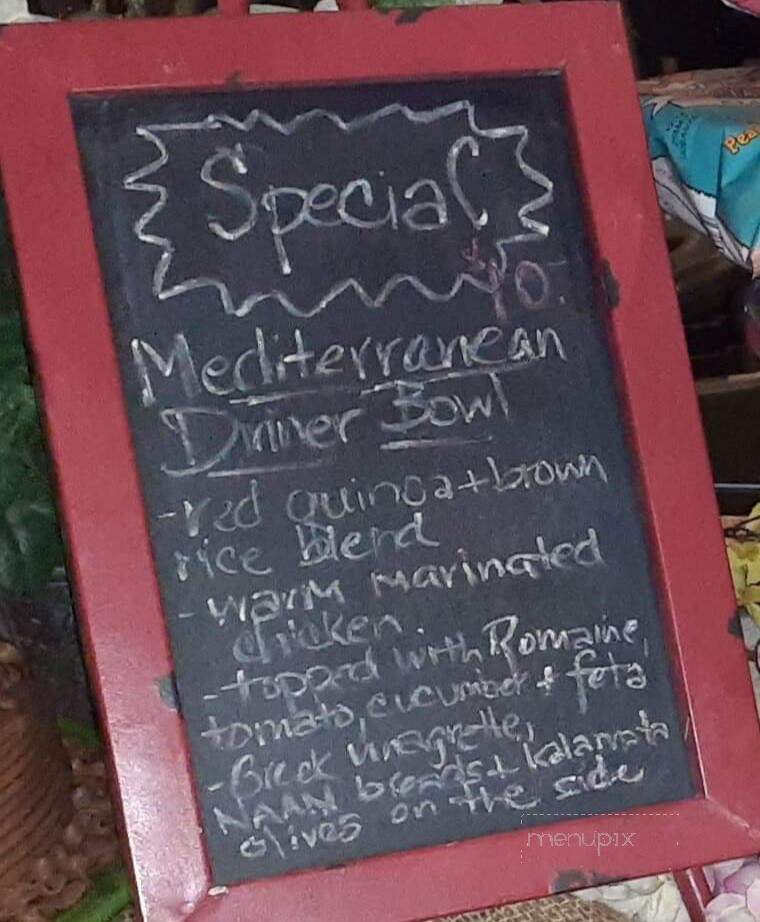 Special
$10.
Mediterranean
Dinner Bowl
-red quinoa + brown
rice blend
- warm marinated
chicken
- topped with Romaine,
tomato, cucumber + feta
- Greek vinagrette,
NAAN breads + kalamata
olives on the side
menupix
Pea